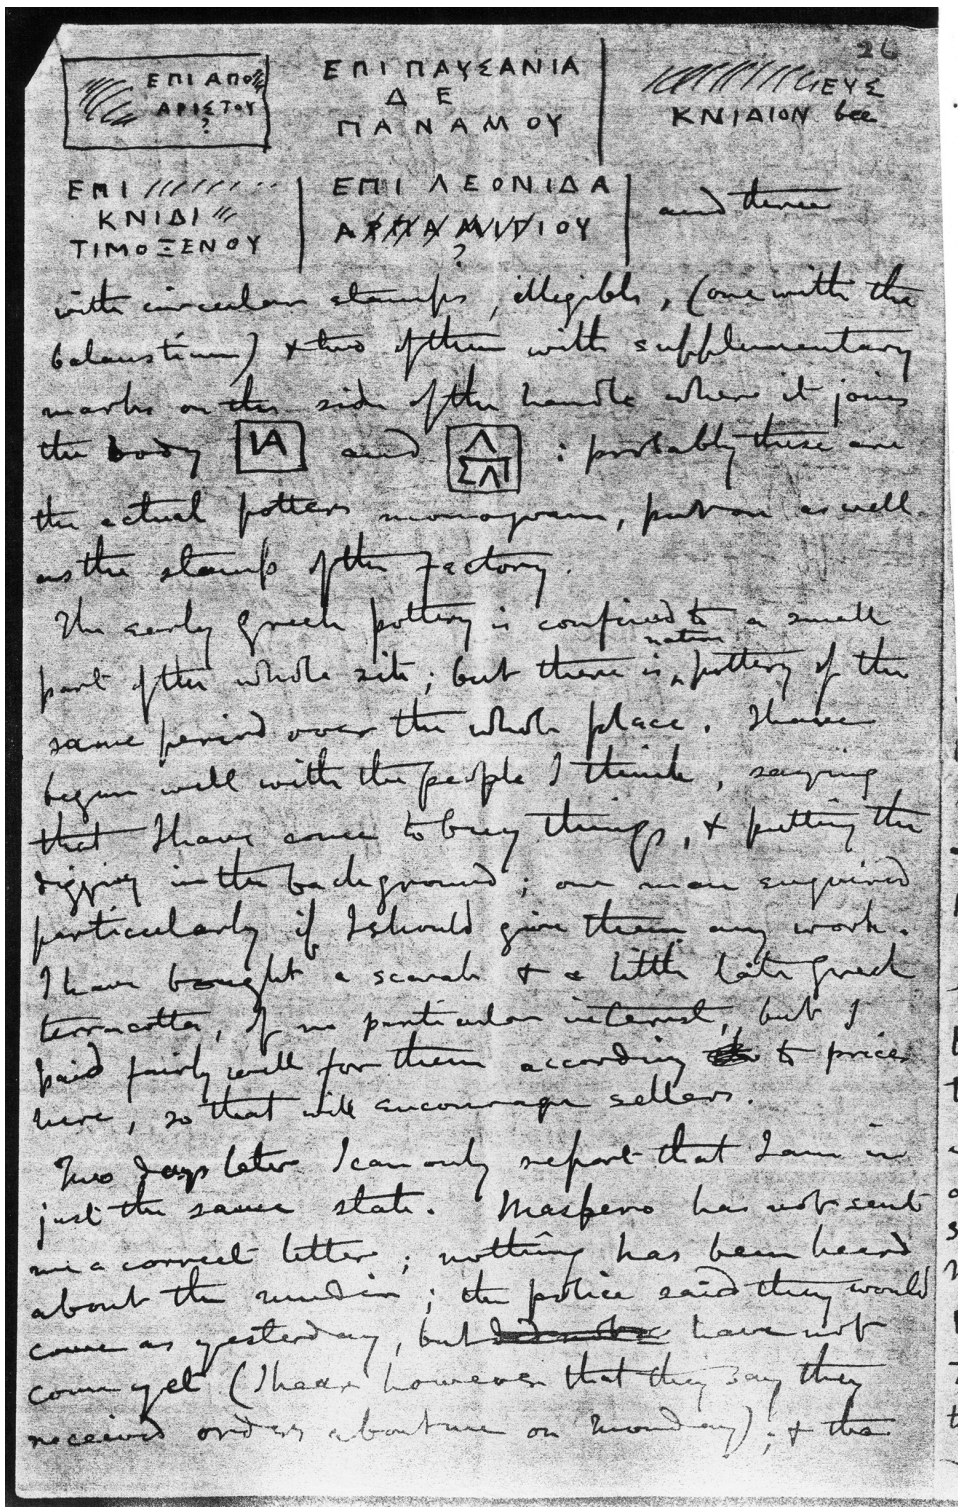 26
ΕΠΙ ΑΠΟ
ΑΡΙΣΤΟΥ
?
ΕΠΙ ΠΑΥΣΑΝΙΑ
Δ Ε
ΠΑΝΑΜΟΥ
ΕΥΣ
ΚΝΙΔΙΟΝ bee
ΕΠΙ
ΚΝΙΔΙ
ΤΙΜΟΞΕΝΟΥ
ΕΠΙ ΛΕΟΝΙΔΑ
ΙΟΥ
?
and three
with circular stamps, illegible, (one with the
balaustium) & two of them with supplementary
marks on the side of the handle where it joins
the body ΙΑ and Λ ΣΛΠ : probably these are
the actual potters monogram, put on as well
as the stamp of the Factory.
The early Greek pottery is confined to a small
part of the whole site; but there is native pottery of the
same period over the whole place. I have
begun well with the people I think, saying
that I have come to buy things, & putting the
digging in the background; one man enquired
particularly if I should give them any work.
I have bought a scarab & a little late Greek
terracotta, of no particular interest, but I
paid fairly well for them according to prices
here, so that will encourage sellers.
Two days later I can only report that I am in
just the same state. Maspero has not sent
me a correct letter; nothing has been heard
about the mudir; the police said they would
come as yesterday, but have not
come yet (I hear however that they say they
received orders about me on Monday); & the